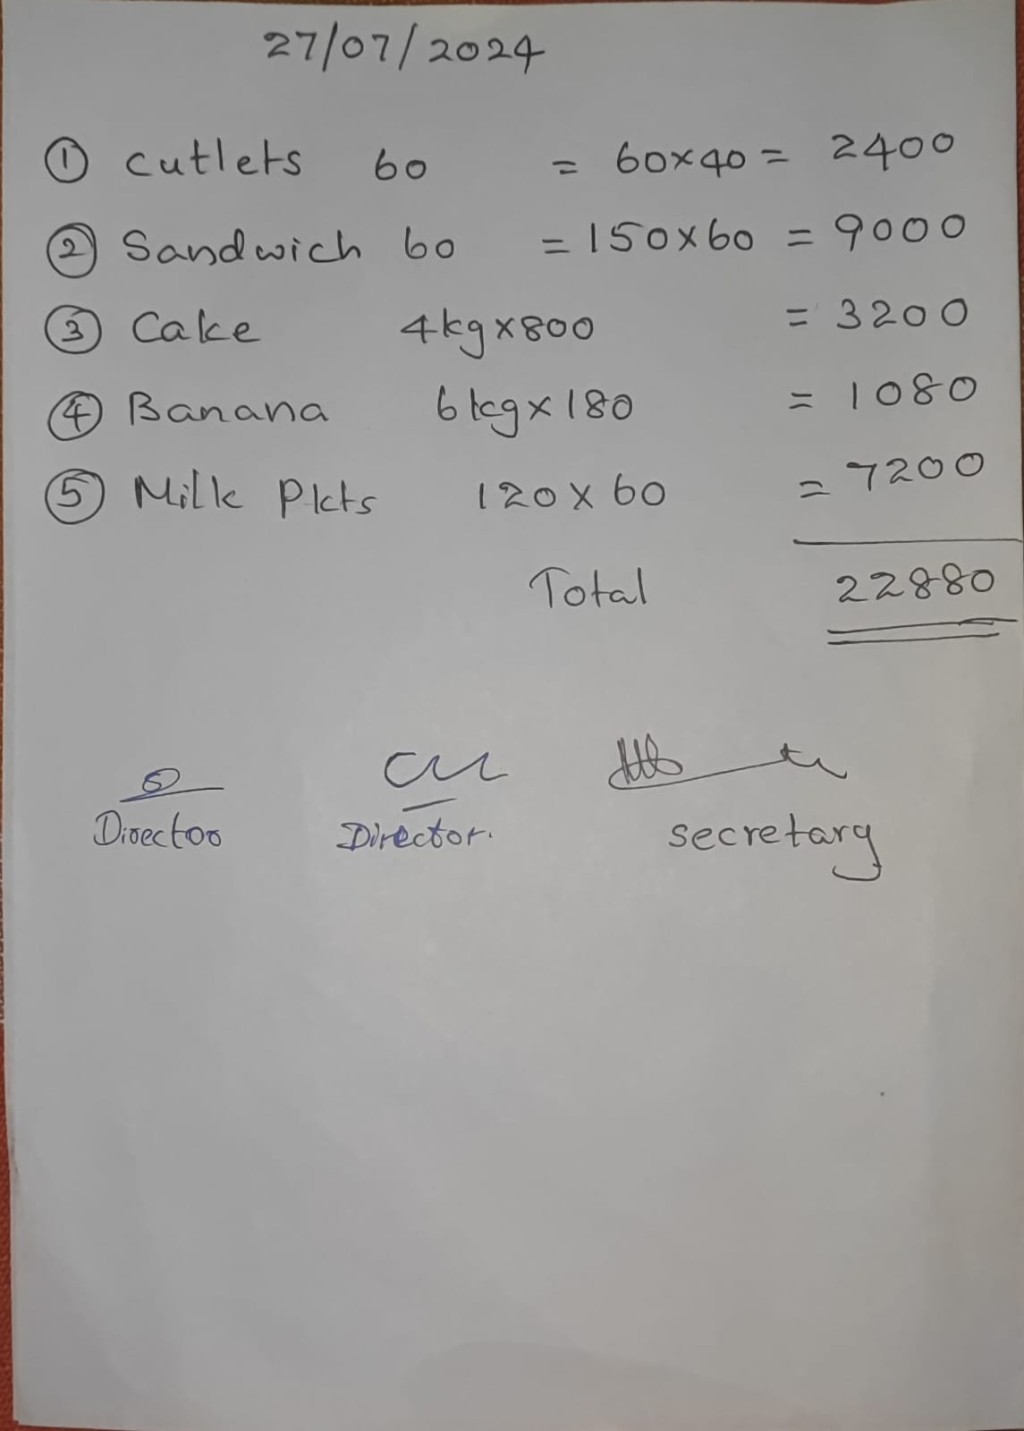 27/07/2024
① cutlets 60 = 60×40 = 2400
② Sandwich 60 = 150×60 = 9000
③ Cake 4kg×800 = 3200
④ Banana 6kg×180 = 1080
⑤ Milk Pkts 120×60 = 7200
Total 22880
Director Director. secretary